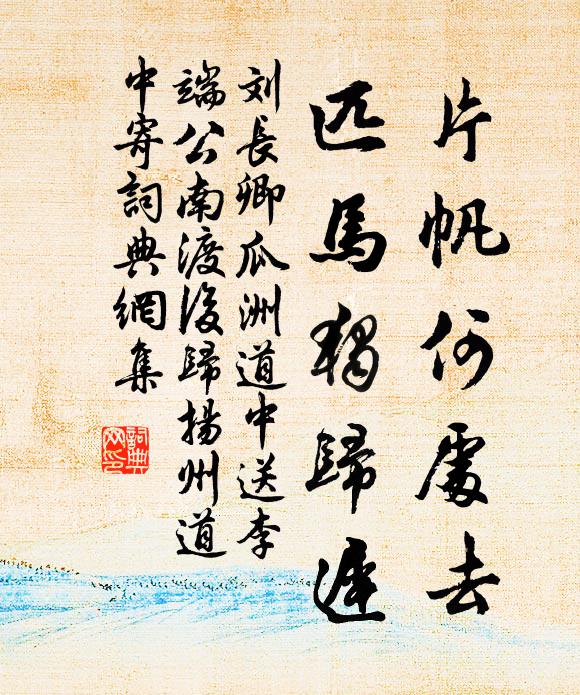 片帆何處去
匹馬獨歸遲
刘長卿瓜洲道中送李
端公南渡後歸揚州道
中寄詞典網集
詞典
网印